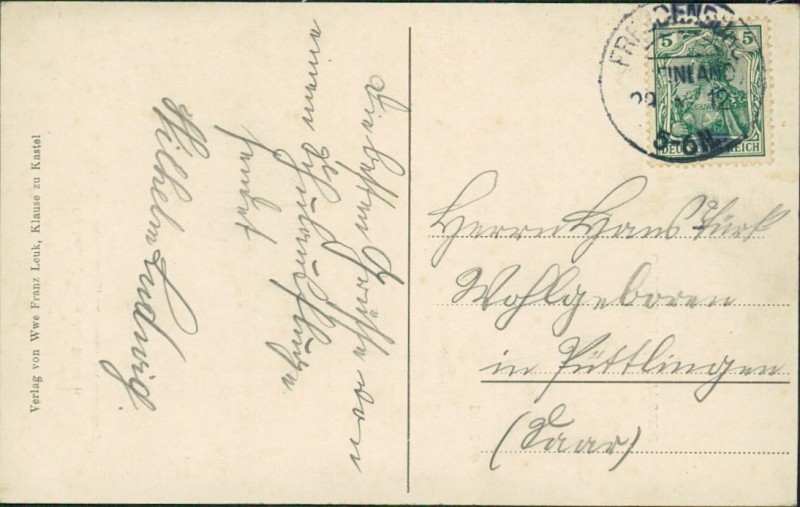 Verlag von Wwe Franz Leuk, Klause zu Kastel
Die besten Grüße von
einem Schulausfluge
sendet
Wilhelm Ludwig.
5 5
FREUDENBURG
12
5-6N.
DEUTSCHES REICH
Herrn Hans Türk
Wohlgeboren
in Püttlingen
(Saar)